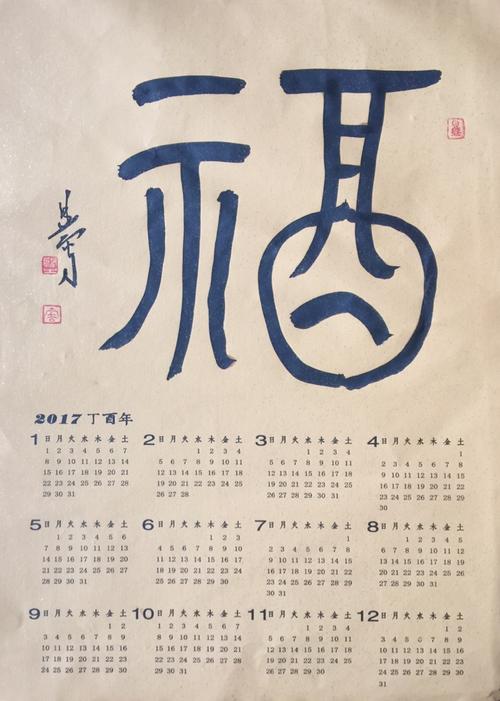 福
2017丁酉年
1 日 月 火 水 木 金 土
1 2 3 4 5 6 7
8 9 10 11 12 13 14
15 16 17 18 19 20 21
22 23 24 25 26 27 28
29 30 31
2 日 月 火 水 木 金 土
1 2 3 4
5 6 7 8 9 10 11
12 13 14 15 16 17 18
19 20 21 22 23 24 25
26 27 28
3 日 月 火 水 木 金 土
1 2 3 4
5 6 7 8 9 10 11
12 13 14 15 16 17 18
19 20 21 22 23 24 25
26 27 28 29 30 31
4 日 月 火 水 木 金 土
1
2 3 4 5 6 7 8
9 10 11 12 13 14 15
16 17 18 19 20 21 22
23 24 25 26 27 28 29
30
5 日 月 火 水 木 金 土
1 2 3 4 5 6
7 8 9 10 11 12 13
14 15 16 17 18 19 20
21 22 23 24 25 26 27
28 29 30 31
6 日 月 火 水 木 金 土
1 2 3
4 5 6 7 8 9 10
11 12 13 14 15 16 17
18 19 20 21 22 23 24
25 26 27 28 29 30
7 日 月 火 水 木 金 土
1
2 3 4 5 6 7 8
9 10 11 12 13 14 15
16 17 18 19 20 21 22
23 24 25 26 27 28 29
30 31
8 日 月 火 水 木 金 土
1 2 3 4 5
6 7 8 9 10 11 12
13 14 15 16 17 18 19
20 21 22 23 24 25 26
27 28 29 30 31
9 日 月 火 水 木 金 土
1 2
3 4 5 6 7 8 9
10 11 12 13 14 15 16
17 18 19 20 21 22 23
24 25 26 27 28 29 30
10 日 月 火 水 木 金 土
1 2 3 4 5 6 7
8 9 10 11 12 13 14
15 16 17 18 19 20 21
22 23 24 25 26 27 28
29 30 31
11 日 月 火 水 木 金 土
1 2 3 4
5 6 7 8 9 10 11
12 13 14 15 16 17 18
19 20 21 22 23 24 25
26 27 28 29 30
12 日 月 火 水 木 金 土
1 2
3 4 5 6 7 8 9
10 11 12 13 14 15 16
17 18 19 20 21 22 23
24 25 26 27 28 29 30
31